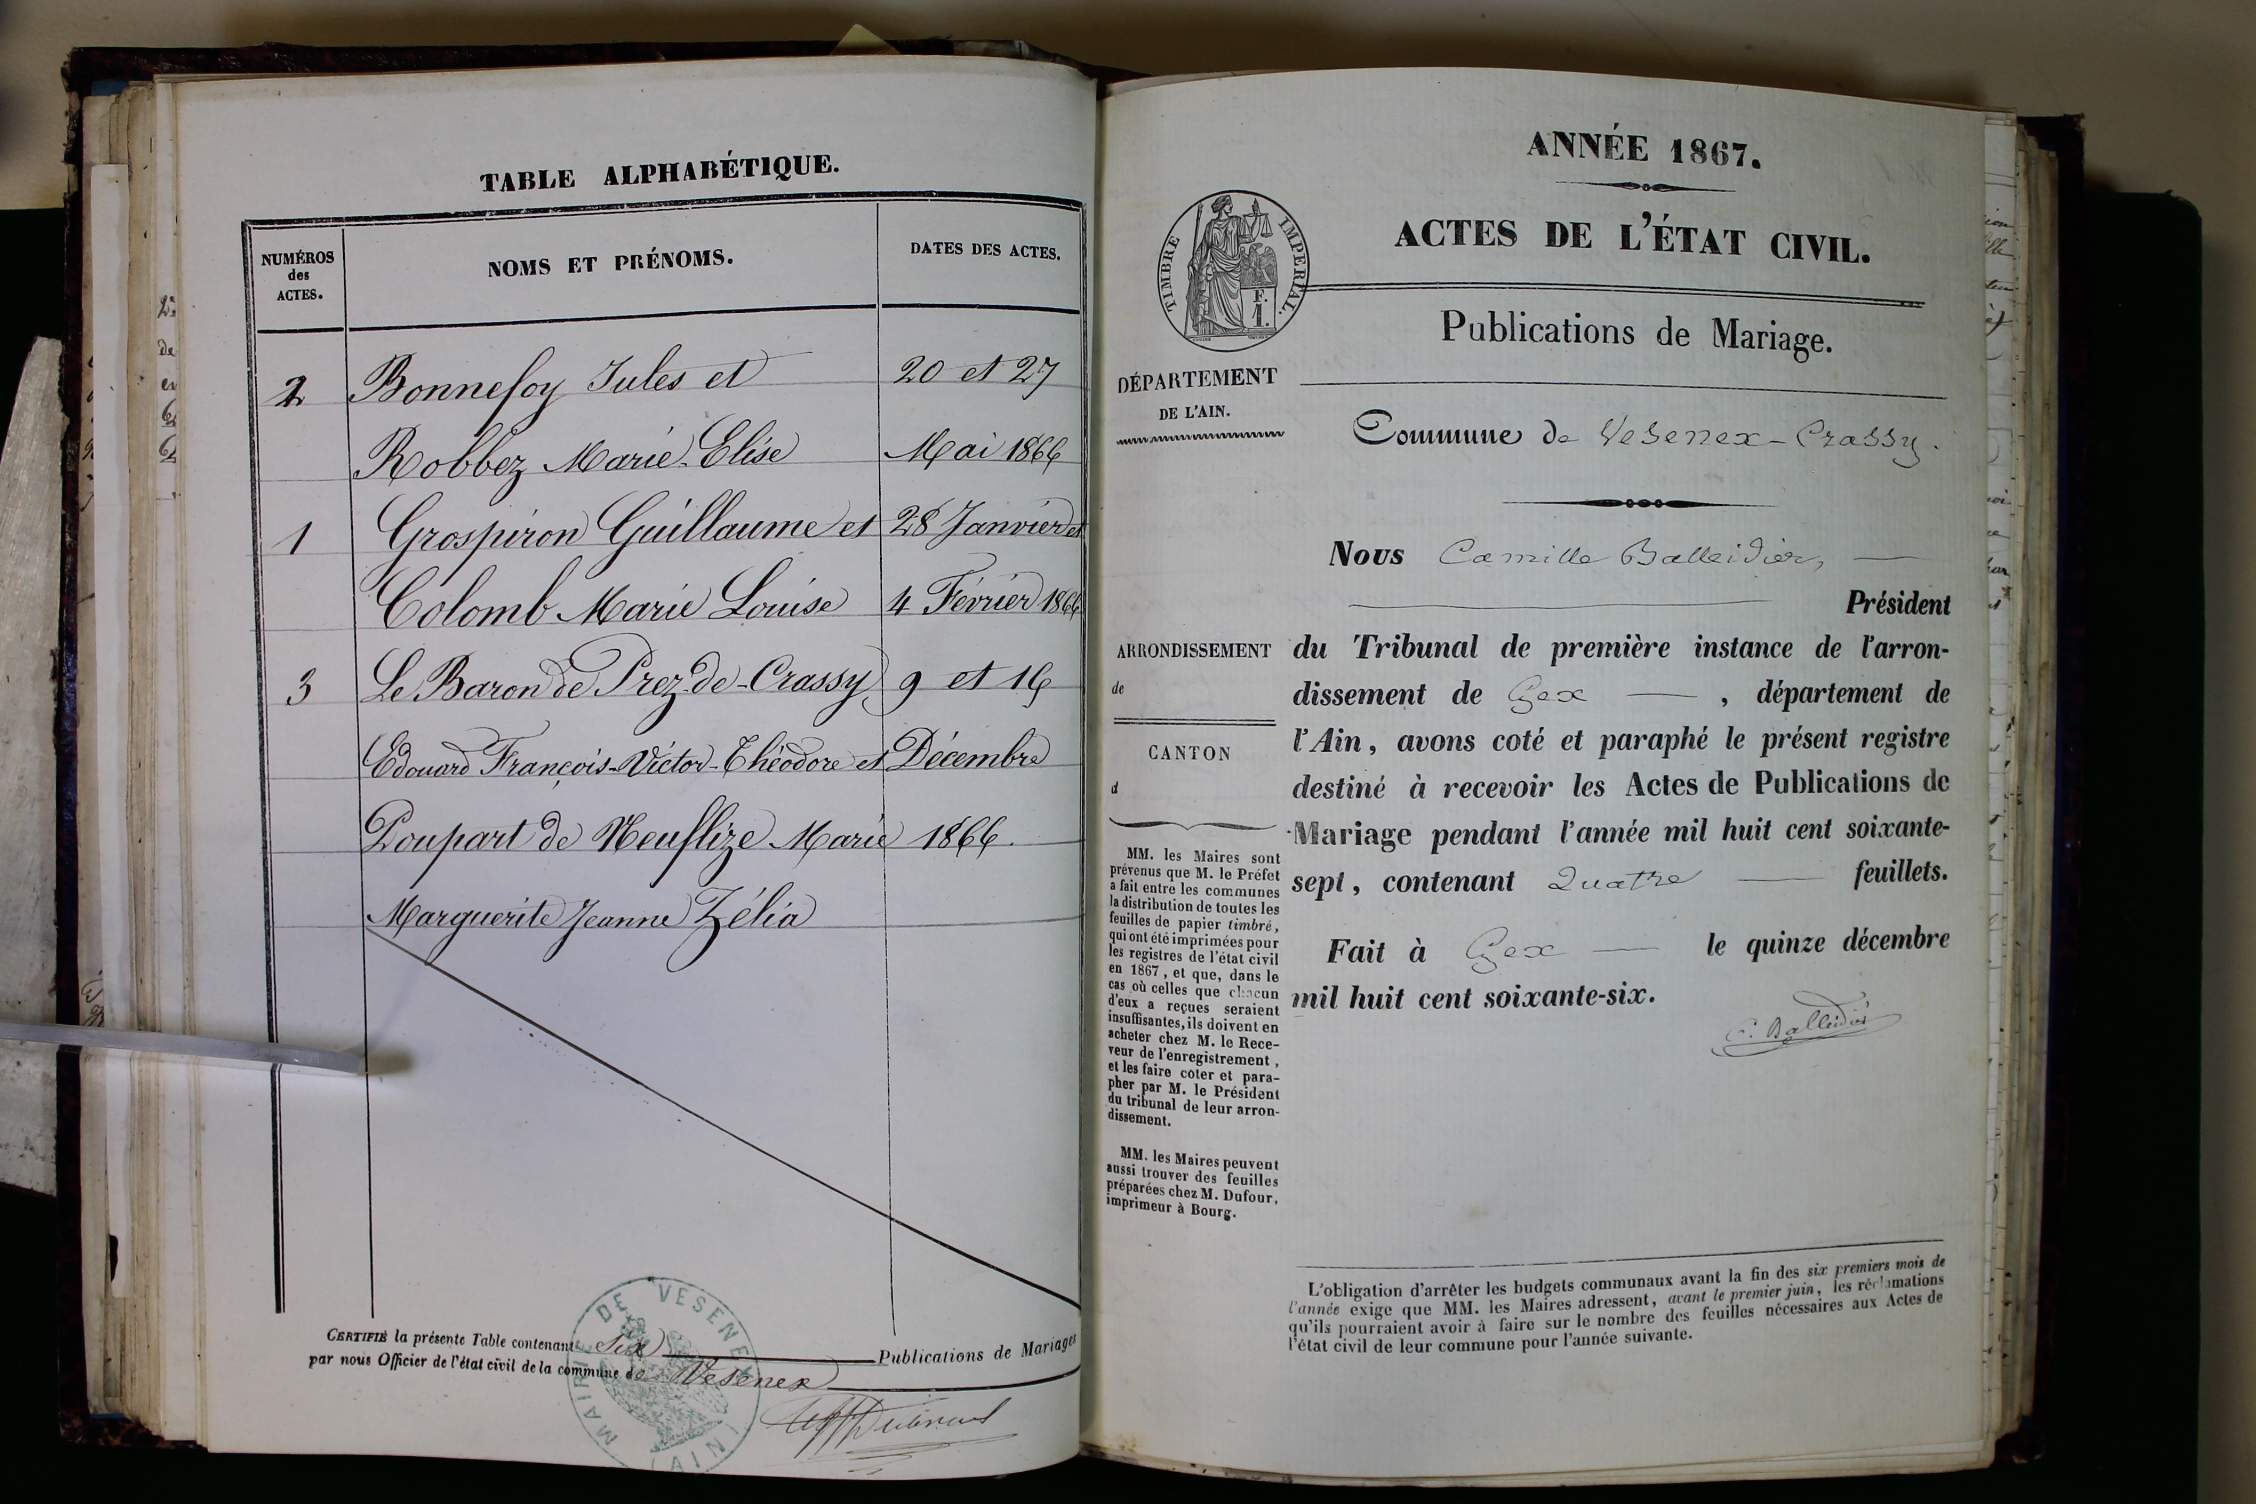 TABLE ALPHABÉTIQUE.
NUMÉROS
des
ACTES.
NOMS ET PRÉNOMS.
DATES DES ACTES.
2 Bonnefoy Jules et 20 et 27
Robbez Marie-Elise Mai 1866
1 Grospiron Guillaume et 28 Janvier et
Colomb Marie Louise 4 Février 1866
3 Le Baron de Prez-de-Crassy 9 et 16
Edouard François-Victor-Théodore et Décembre
Poupart de Neuflize Marie 1866.
Marguerite Jeanne Zélia
CERTIFIÉ la présente Table contenant Six Publications de Mariages
par nous Officier de l'état civil de la commune de Vesenex
MAIRIE DE VESENEX
(AIN)
ANNÉE 1867.
ACTES DE L'ÉTAT CIVIL.
TIMBRE IMPERIAL.
F.
1.
Publications de Mariage.
DÉPARTEMENT
DE L'AIN.
Commune de Vesenex-Crassy.
Nous Camille Balleidier,
Président
ARRONDISSEMENT
de
CANTON
d
du Tribunal de première instance de l'arron-
dissement de Gex, département de
l'Ain, avons coté et paraphé le présent registre
destiné à recevoir les Actes de Publications de
Mariage pendant l'année mil huit cent soixante-
sept, contenant Quatre feuillets.
Fait à Gex le quinze décembre
mil huit cent soixante-six.
C. Balleidier
MM. les Maires sont
prévenus que M. le Préfet
a fait entre les communes
la distribution de toutes les
feuilles de papier timbré,
qui ont été imprimées pour
les registres de l'état civil
en 1867, et que, dans le
cas où celles que chacun
d'eux a reçues seraient
insuffisantes, ils doivent en
acheter chez M. le Rece-
veur de l'enregistrement,
et les faire coter et para-
pher par M. le Président
du tribunal de leur arron-
dissement.
MM. les Maires peuvent
aussi trouver des feuilles
préparées chez M. Dufour,
imprimeur à Bourg.
L'obligation d'arrêter les budgets communaux avant la fin des six premiers mois de
l'année exige que MM. les Maires adressent, avant le premier juin, les réclamations
qu'ils pourraient avoir à faire sur le nombre des feuilles nécessaires aux Actes de
l'état civil de leur commune pour l'année suivante.